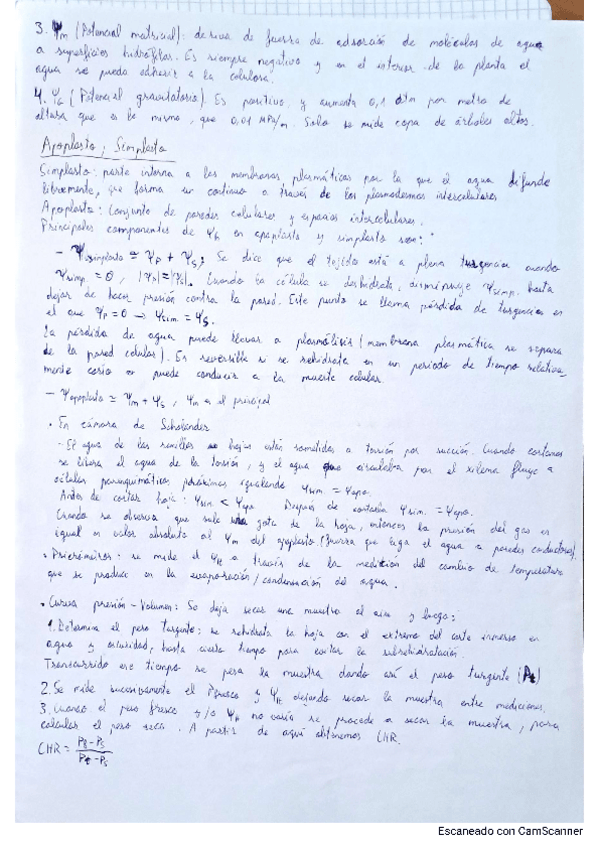 3. Ψm (Potencial matricial): deriva de fuerza de adsorción de moléculas de agua
a superficies hidrófilas. Es siempre negativo y en el interior de la planta el
agua se puede adherir a la celulosa.
4. ΨG (Potencial gravitatorio). Es positivo, y aumenta 0,1 atm por metro de
altura que es lo mismo, que 0,01 MPa/m. Solo se mide copa de árboles altos.
Apoplasto y Simplasto
Simplasto: parte interna a las membranas plasmáticas por la que el agua difunde
libremente, que forma un continuo a través de los plasmodesmos intercelulares
Apoplasto: Conjunto de paredes celulares y espacios intercelulares.
Principales componentes de ΨH en apoplasto y simplasto son:
- Ψsimplasto ≈ ΨP + ΨS; Se dice que el tejido está a plena turgencia cuando
Ψsimp. = 0, |ΨP|=|ΨS|. Cuando la célula se deshidrata, disminuye Ψsimp. hasta
dejar de hacer presión contra la pared. Este punto se llama pérdida de turgencia en
el que ΨP=0 → Ψsim. = ΨS.
La pérdida de agua puede llevar a plasmólisis (membrana plasmática se separa
de la pared celular). Es reversible si se rehidrata en un periodo de tiempo relativa-
mente corto o puede conducir a la muerte celular.
- Ψapoplasto ≈ Ψm + ΨS, Ψm es el principal
• En cámara de Scholander
- El agua de las hojas están sometidas a tensión por succión. Cuando cortamos
se libera el agua de la tensión, y el agua que circulaba por el xilema fluye a
células parenquimáticas próximas igualando Ψsim. = Ψapo.
Antes de cortar hoja: Ψsim < Ψapo Después de cortarla Ψsim. = Ψapo.
Cuando se observa que sale una gota de la hoja, entonces la presión del gas es
igual en valor absoluto al Ψm del apoplasto (fuerza que liga el agua a paredes conductoras).
• Psicrómetros: se mide el ΨH a través de la medición del cambio de temperatura
que se produce en la evaporación/condensación del agua.
• Curva presión-Volumen: Se deja secar una muestra al aire y luego:
1. Determina el peso turgente: se rehidrata la hoja con el extremo del corte inmerso en
agua y oscuridad, hasta cierto tiempo para evitar la sobrehidratación.
Transcurrido ese tiempo se pesa la muestra dando así el peso turgente (Pt)
2. Se mide sucesivamente el Pfresco y ΨH dejando secar la muestra entre mediciones.
3. Cuando el peso fresco y/o ΨH no varía se procede a secar la muestra, para
calcular el peso seco. A partir de aquí obtenemos CHR.
CHR = Pf-Ps / Pt-Ps
Escaneado con CamScanner